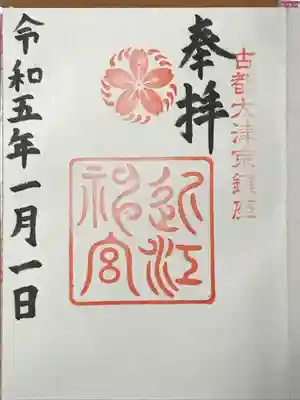 古都大津京鎮座
奉拝
近江神宮
令和五年一月一日